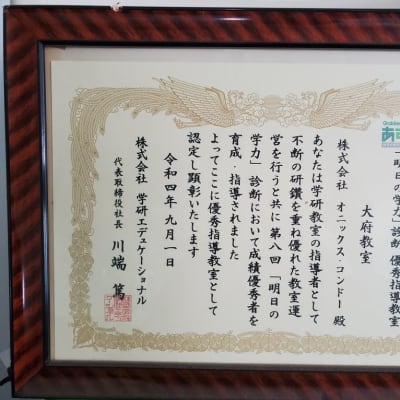 「明日の学力」診断 優秀指導教室
大府教室
株式会社 オニックス・コンドー 殿
あなたは学研教室の指導者として
不断の研鑽を重ね優れた教室運
営を行うと共に第八回「明日の
学力」診断において成績優秀者を
育成・指導されました
よってここに優秀指導教室として
認定し顕彰いたします
令和四年九月一日
株式会社 学研エデュケーショナル
代表取締役社長 川端 篤